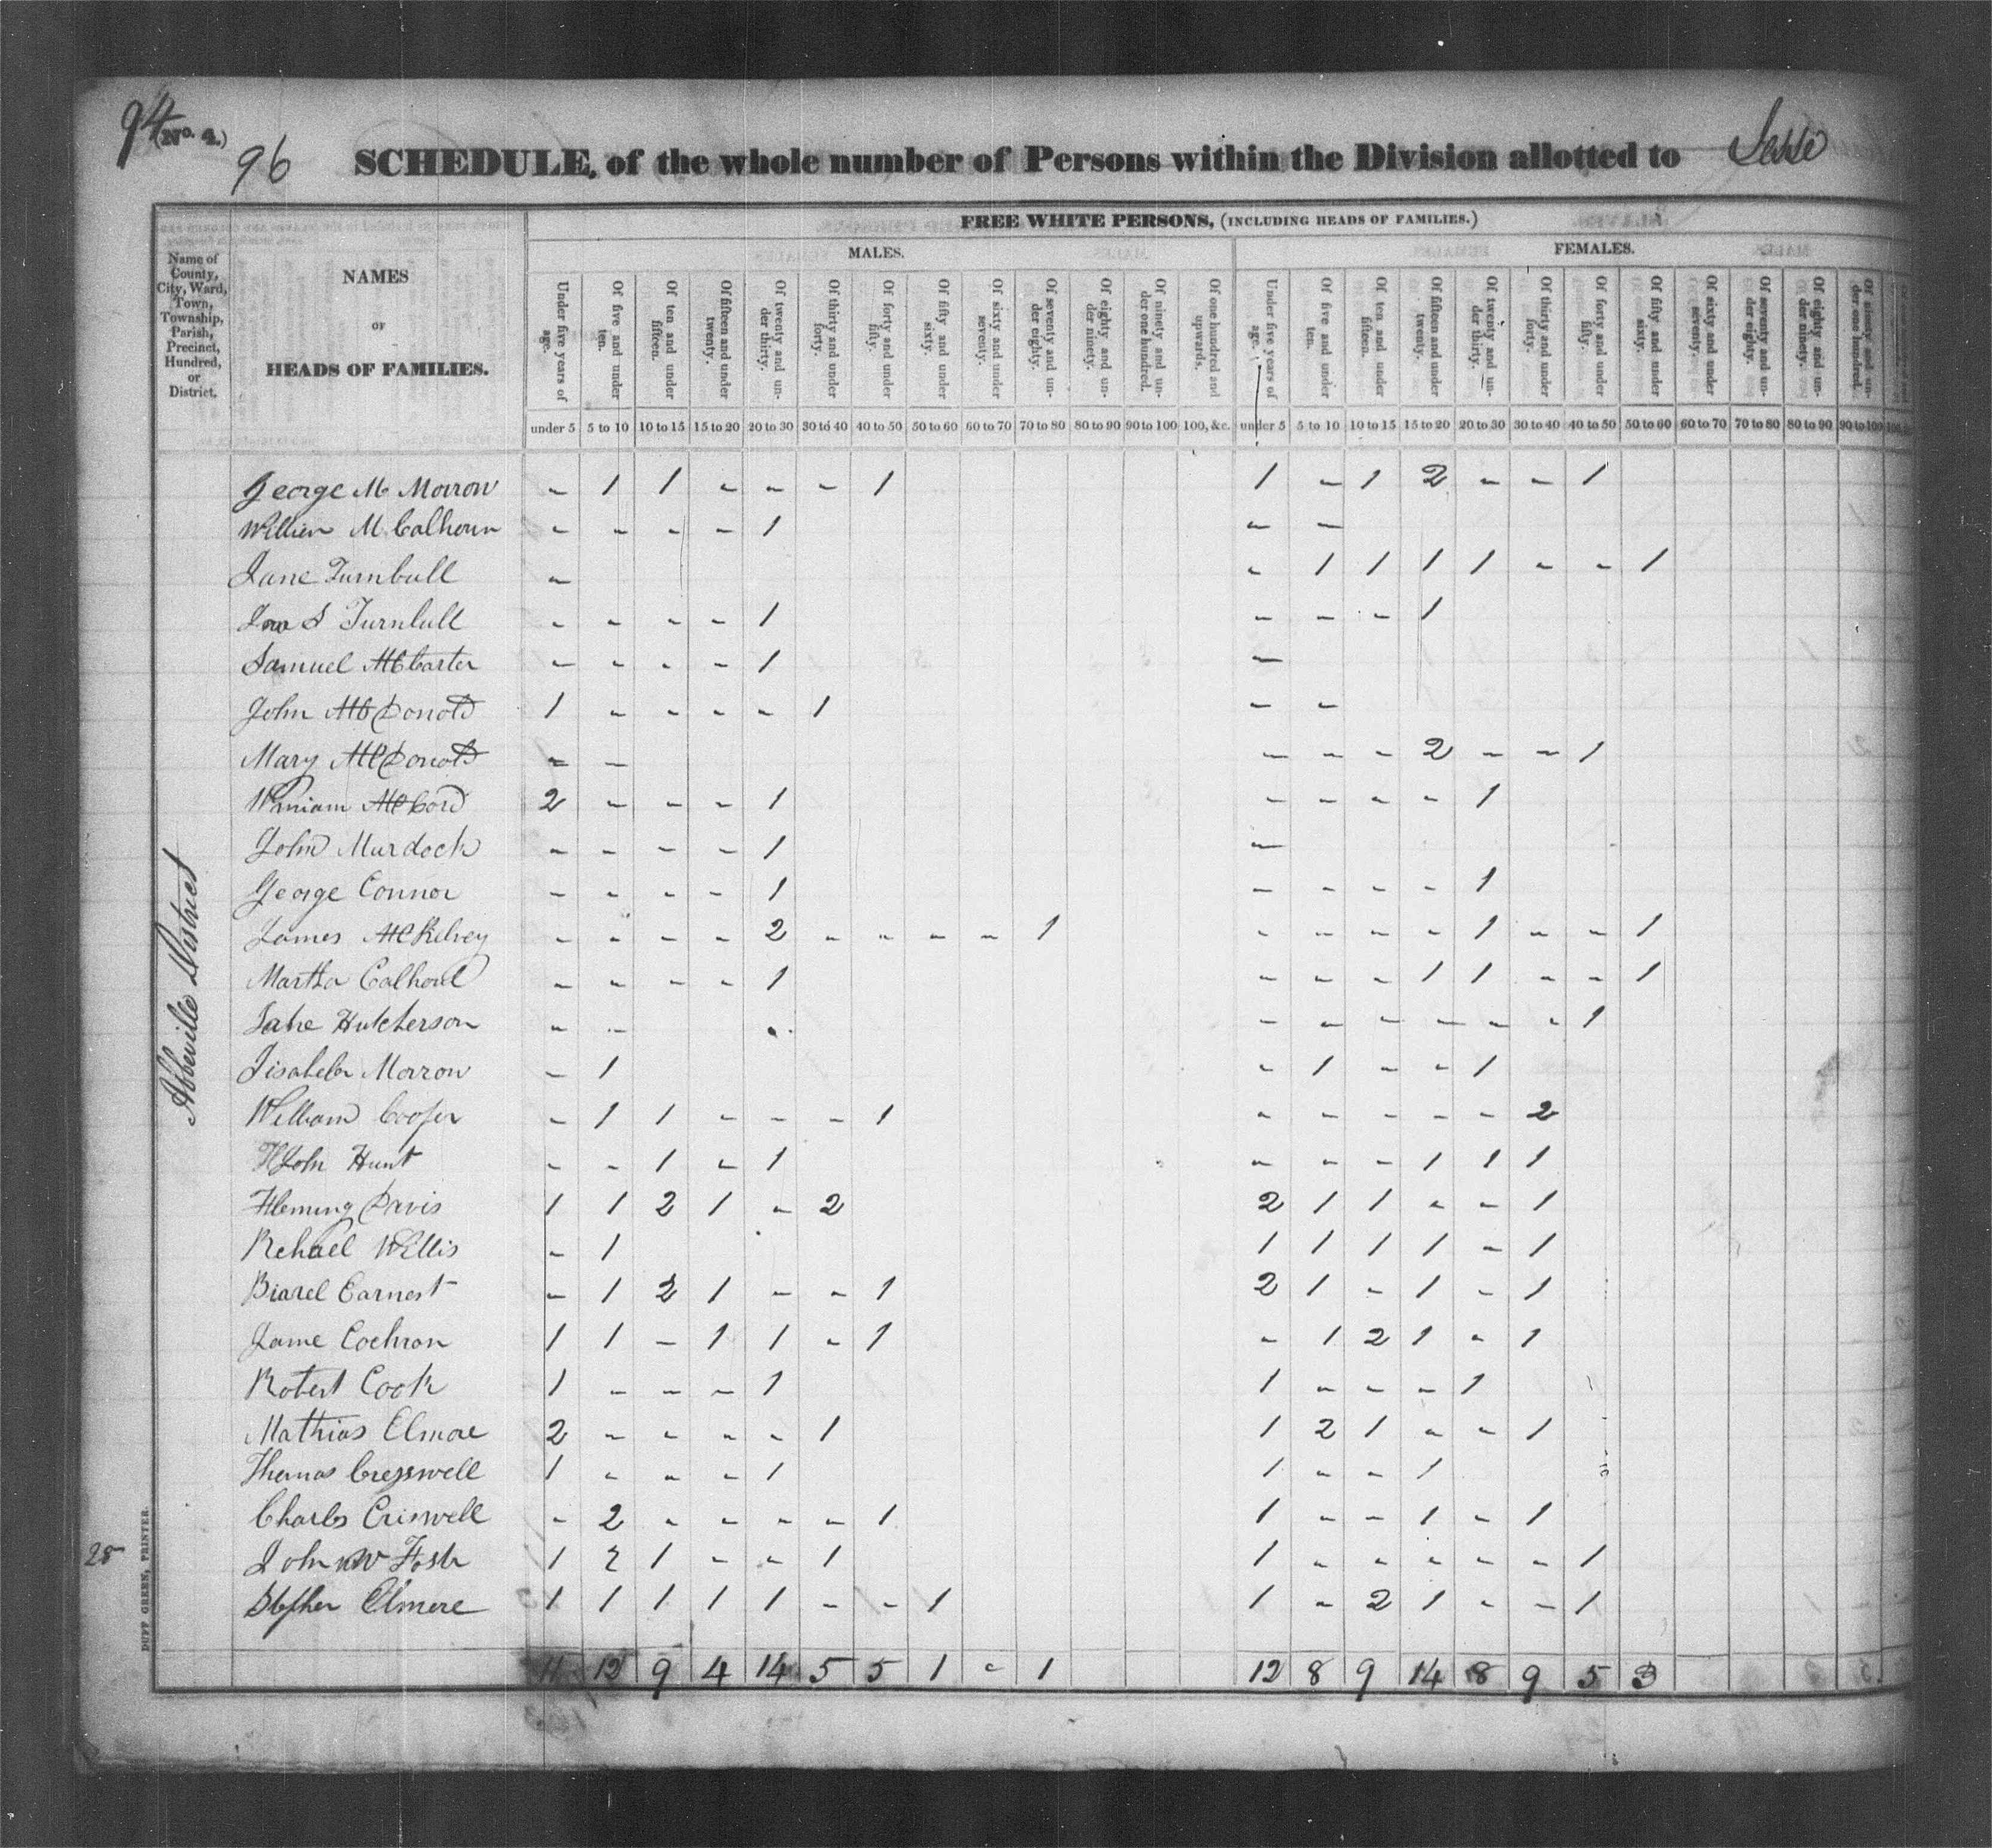 94 (No. 4.)
96 SCHEDULE, of the whole number of Persons within the Division allotted to Jesse
FREE WHITE PERSONS, (INCLUDING HEADS OF FAMILIES.)
MALES. FEMALES.
Name of County, City, Ward, Town, Township, Parish, Precinct, Hundred, or District.
NAMES
OF
HEADS OF FAMILIES.
Under five years of age. Of five and under ten. Of ten and under fifteen. Of fifteen and under twenty. Of twenty and under thirty. Of thirty and under forty. Of forty and under fifty. Of fifty and under sixty. Of sixty and under seventy. Of seventy and under eighty. Of eighty and under ninety. Of ninety and under one hundred. Of one hundred and upwards. Under five years of age. Of five and under ten. Of ten and under fifteen. Of fifteen and under twenty. Of twenty and under thirty. Of thirty and under forty. Of forty and under fifty. Of fifty and under sixty. Of sixty and under seventy. Of seventy and under eighty. Of eighty and under ninety. Of ninety and under one hundred.
under 5 5 to 10 10 to 15 15 to 20 20 to 30 30 to 40 40 to 50 50 to 60 60 to 70 70 to 80 80 to 90 90 to 100 100, &c. under 5 5 to 10 10 to 15 15 to 20 20 to 30 30 to 40 40 to 50 50 to 60 60 to 70 70 to 80 80 to 90 90 to 100
Abbeville District
George M Morrow - 1 1 - - - 1 1 - 1 2 - - 1
William M Calhoun - - - - 1 - -
Jane Turnbull - - 1 1 1 1 - - 1
S Turnbull - - - - 1 - - - 1
Samuel McCarter - - - - 1 -
John McDonold 1 - - - - 1 - -
Mary McDonold - - - - - 2 - - 1
William McCord 2 - - - 1 - - - - 1
John Murdock - - - - 1 -
George Connor - - - - 1 - - - - 1
James McKelvey - - - - 2 - - - - 1 - - - - 1 - - 1
Martha Calhoul - - - - 1 - - - 1 1 - - 1
Hutcherson - - - - - - - - 1
Morrow - 1 - 1 - - 1
William Cooper - 1 1 - - - 1 - - - - - 2
John Hunt - - 1 - 1 - - - 1 1 1
Fleming Davis 1 1 2 1 - 2 2 1 1 - - 1
Rehael Wellis - 1 1 1 1 1 - 1
Earnest - 1 2 1 - - 1 2 1 - 1 - 1
Jame Cochran 1 1 - 1 1 - 1 - 1 2 1 - 1
Robert Cook 1 - - - 1 1 - - - 1
Mathias Elmore 2 - - - - 1 1 2 1 - - 1
Thomas Cresswell 1 - - - 1 1 - - 1
Charles Criswell - 2 - - - - 1 1 - - 1 - 1
28 John W Foster 1 2 1 - - 1 1 - - - - - 1
Stepher Elmore 1 1 1 1 1 - - 1 1 - 2 1 - - 1
11 12 9 4 14 5 5 1 - 1 12 8 9 14 8 9 5 3
DUFF GREEN, PRINTER.